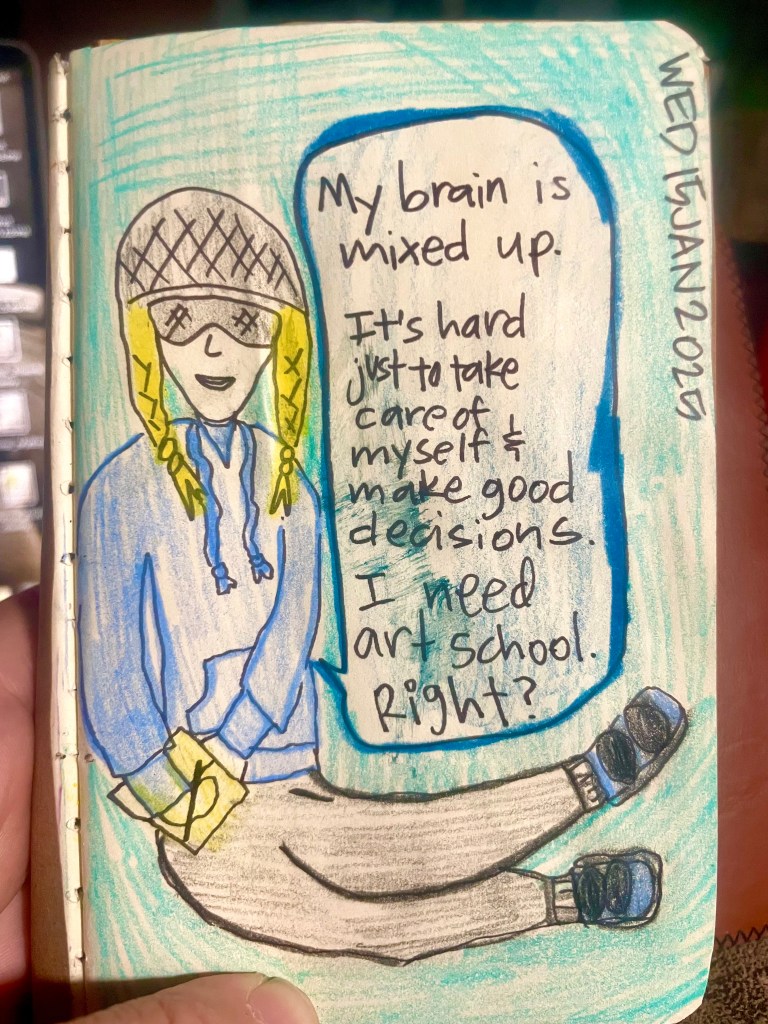 WED 15 JAN 2025
My brain is
mixed up.
It's hard
just to take
care of
myself &
make good
decisions.
I need
art school.
Right?